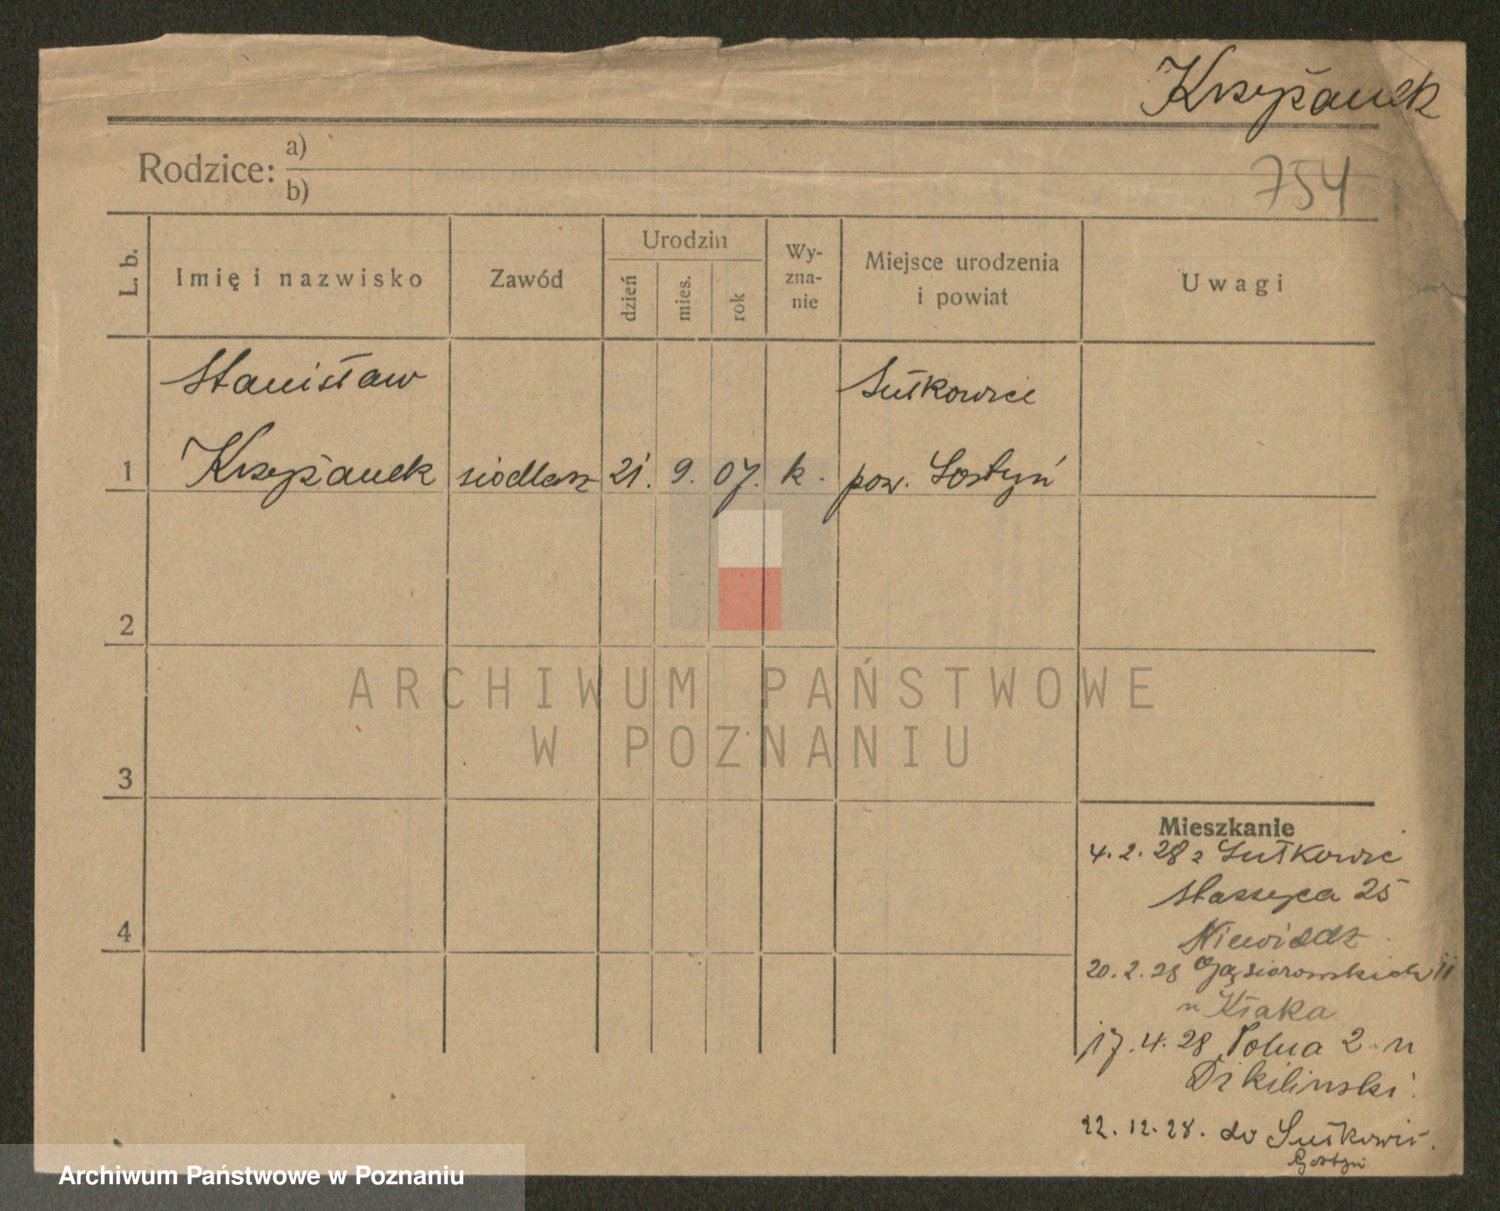 Krzyżanek
Rodzice: a)
b)
754
L. b.
Imię i nazwisko
Zawód
Urodzin
dzień
mies.
rok
Wy-
zna-
nie
Miejsce urodzenia
i powiat
Uwagi
Stanisław
Sułkowice
1 Krzyżanek siodlarz 21. 9. 07. k. pow. Gostyń
2
3
4
ARCHIWUM PAŃSTWOWE
W POZNANIU
Mieszkanie
4.2.28 z Sułkowic
Staszyca 25
20.2.28 Gąsiorowskich
17.4.28 Polna 2 u
22.12.28. do Sułkowic.
Gostyń
Archiwum Państwowe w Poznaniu